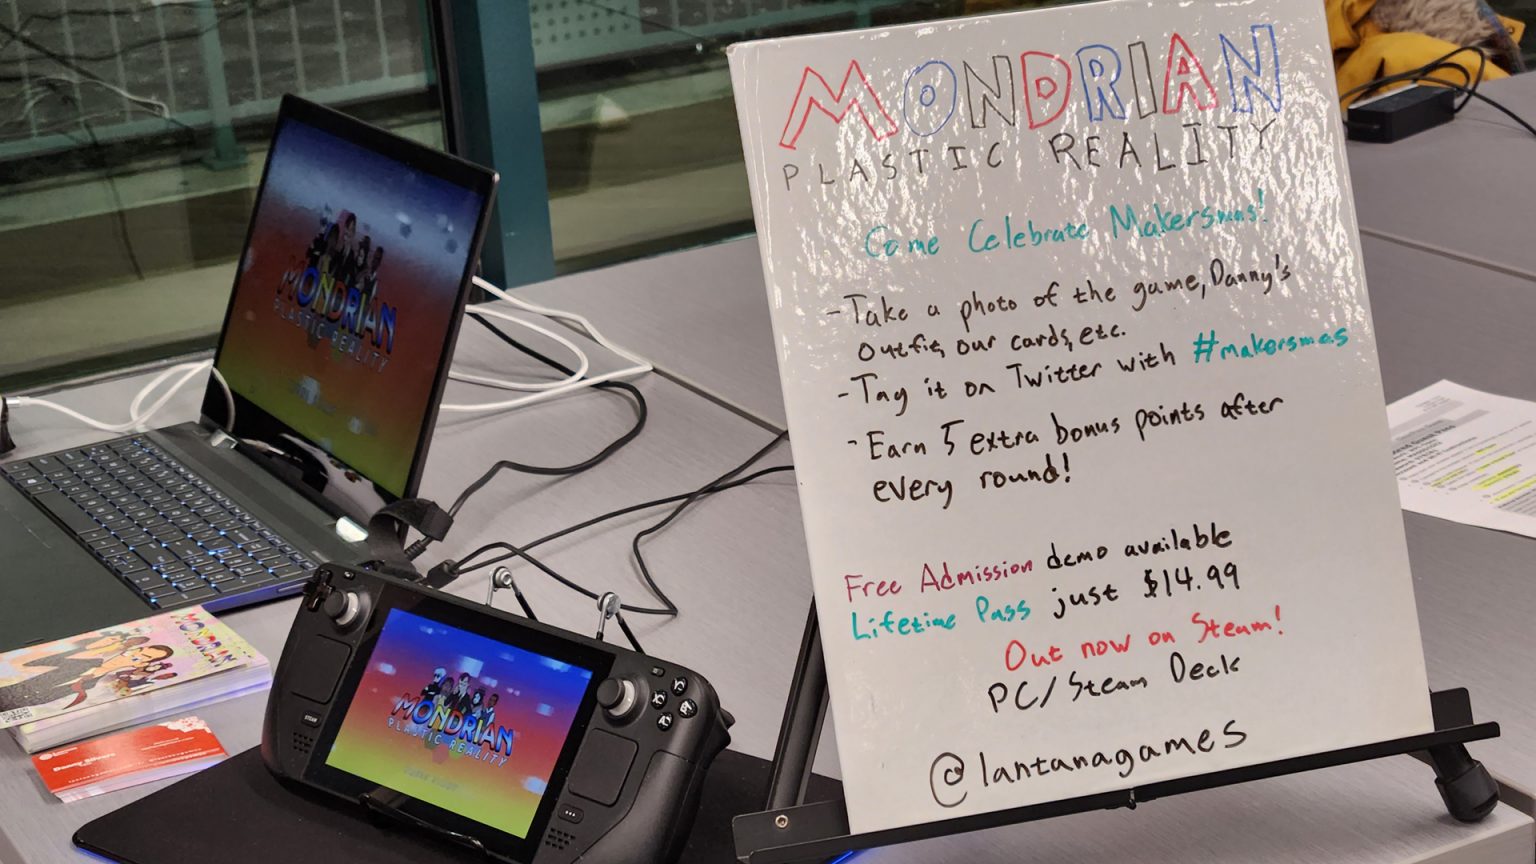 MONDRIAN
PLASTIC REALITY
Come Celebrate Makersmas!
- Take a photo of the game, Danny's
outfit, our cards, etc.
- Tag it on Twitter with #makersmas
- Earn 5 extra bonus points after
every round!
Free Admission demo available
Lifetime Pass just $14.99
Out now on Steam!
PC/Steam Deck
@lantanagames
MONDRIAN
PLASTIC REALITY
MONDRIAN
PLASTIC REALITY
MONDRIAN
STEAM